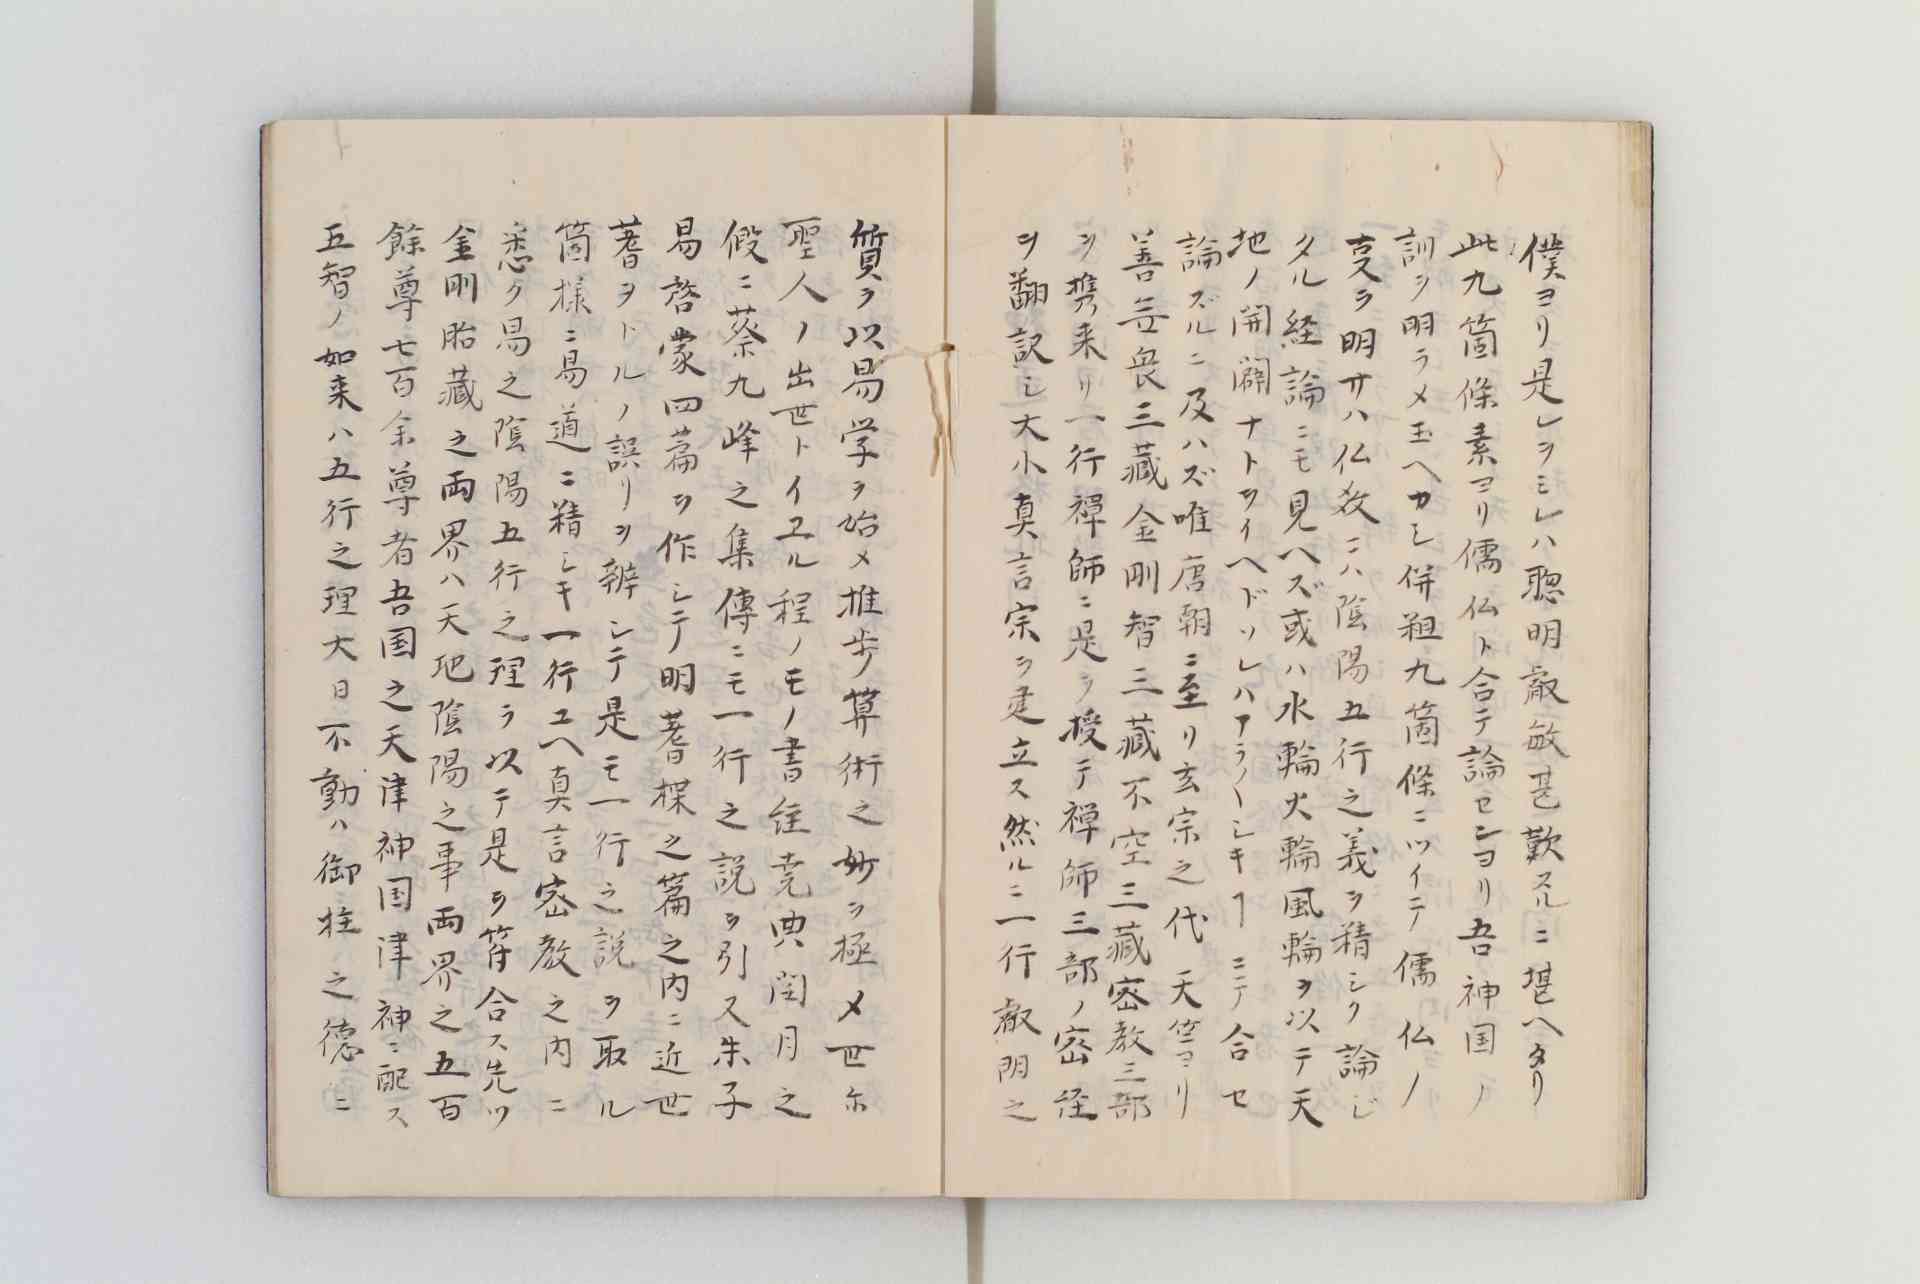 僕ヨリ是レヲミレハ聡明叡敏甚歎スルニ堪ヘタリ
此九箇條素ヨリ儒仏ト合テ論センヨリ吾神国ノ
訓ヲ明ラメ玉ヘカシ併粗九箇條ニツイテ儒仏ノ
叓ヲ明サハ仏教ニハ陰陽五行之義ヲ精シク論じ
タル経論ニモ見ヘズ或ハ水輪火輪風輪ヲ以テ天
地ノ開闢ナトヲイヘドソレハアラ〱シキヿニテ合セ
論ズルニ及ハズ唯唐朝ニ至リ玄宗之代天竺ヨリ
善无畏三藏金剛智三藏不空三藏密教三部
ヲ携来リ一行禅師ニ是ヲ授テ禅師三部ノ密経
ヲ翻訳シ大小真言宗ヲ建立ス然ルニ一行叡明之
質ヲ以易学ヲ始メ推歩算術之妙ヲ極メ世尓
聖人ノ出世トイヱル程ノモノ書経堯典閏月之
假ニ蔡九峰之集傳ニモ一行之説ヲ引ス朱子
易啓蒙四篇ヲ作シテ明蓍楪之篇之内ニ近世
蓍ヲトルノ誤リヲ辨シテ是モ一行之説ヲ取ル
箇様ニ易道ニ精シキ一行ユヘ真言密教之内ニ
悉ク易之陰陽五行之理ヲ以テ是ヲ符合ス先ツ
金剛胎藏之両界ハ天地陰陽之事両界之五百
餘尊七百余尊者吾国之天津神国津神ニ配ス
五智ノ如来ハ五行之理大日不動ハ御柱之徳ニ